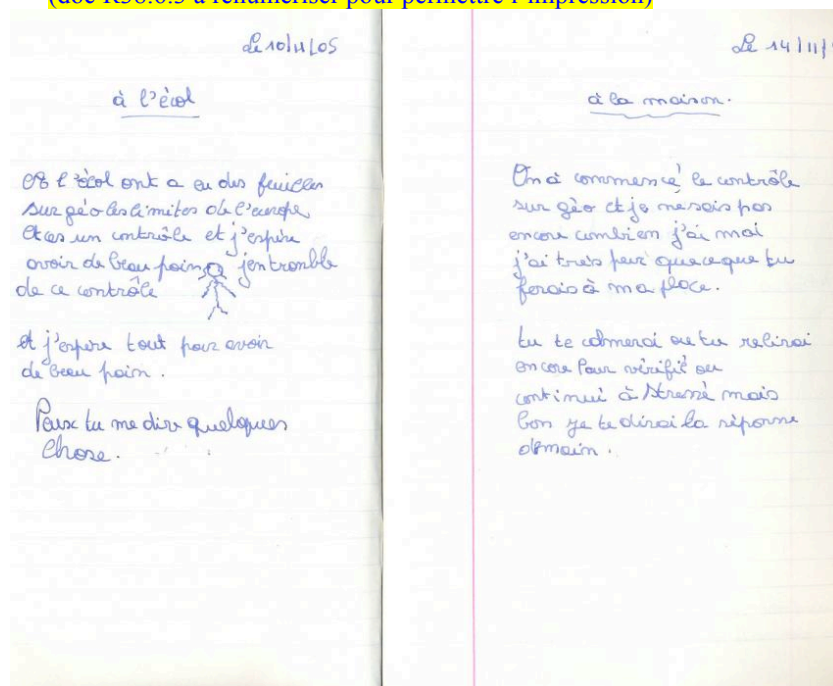 (doc R36.6.3 à renumériser pour permettre l'impression)
Le 10/11/05
à l'écol
A l'écol ont a eu des feuilles
sur géo les limites de l'europe
et ces un contrôle et j'espère
avoir de beau poin jen tremble
de ce contrôle
et j'espère tout pour avoir
de beau poin.
Peux tu me dire quelques
chose.
Le 14/11/
à la maison.
On à commencé le contrôle
sur géo et je ne sais pas
encore combien j'ai moi
j'ai très peur que ce que tu
ferais à ma place.
tu te calmerai ou tu relirai
encore Pour vérifié ou
continué à Stressé mais
bon je te dirai la réponse
demain.